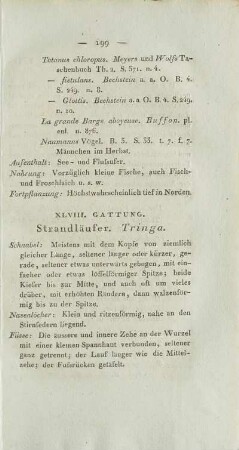 — 199 —
Totanus chloropus. Meyers und Wolfs Ta-
schenbuch Th. 2. S. 371. n. 4.
— fistulans. Bechstein a. a. O. B. 4.
S. 249. n. 8.
— Glottis. Bechstein a. a. O. B. 4. S. 249.
n. 10.
La grande Barge aboyeuse. Buffon. pl.
enl. n. 876.
Naumanns Vögel. B. 3. S. 53. t. 7. f. 7.
Männchen im Herbst.
Aufenthalt: See- und Flufsufer.
Nahrung: Vorzüglich kleine Fische, auch Fisch-
und Froschlaich u. s. w.
Fortpflanzung: Höchstwahrscheinlich tief in Norden.
XLVIII. GATTUNG.
Strandläufer. Tringa.
Schnabel: Meistens mit dem Kopfe von ziemlich
gleicher Länge, seltener länger oder kürzer, ge-
rade, seltener etwas unterwärts gebogen, mit ein-
facher oder etwas löffelförmiger Spitze; beide
Kiefer bis zur Mitte, und auch oft um vieles
drüber, mit erhöhten Rändern, dann walzenför-
mig bis zu der Spitze.
Nasenlöcher: Klein und ritzenförmig, nahe an den
Stirnfedern liegend.
Füsse: Die äussere und innere Zehe an der Wurzel
mit einer kleinen Spannhaut verbunden, seltener
ganz getrennt; der Lauf länger wie die Mittel-
zehe; der Fufsrücken getäfelt.